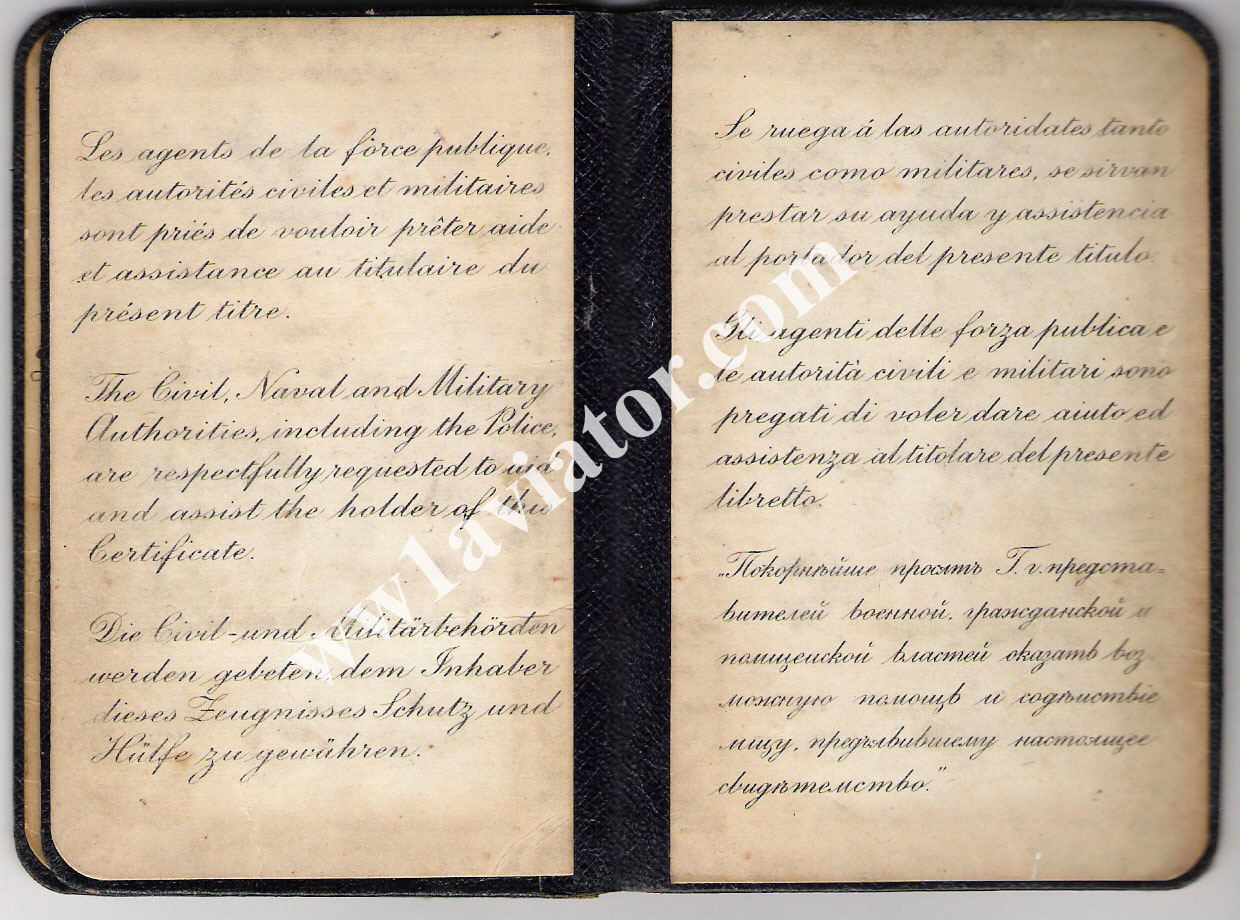 Les agents de la force publique,
les autorités civiles et militaires
sont priés de vouloir prêter aide
et assistance au titulaire du
présent titre.
The Civil, Naval and Military
Authorities, including the Police,
are respectfully requested to aid
and assist the holder of this
Certificate.
Die Civil-und Militärbehörden
werden gebeten, dem Inhaber
dieses Zeugnisses Schutz und
Hülfe zu gewähren.
Se ruega á las autoridates tanto
civiles como militares, se sirvan
prestar su ayuda y assistencia
al portador del presente titulo.
Gli agenti delle forza publica e
le autorità civili e militari sono
pregati di voler dare aiuto ed
assistenza al titolare del presente
libretto.
„Покорнѣйше просятъ Г.г. предста-
вителей военной, гражданской и
полицейской властей оказать воз-
можную помощь и содѣйствіе
лицу, предъявившему настоящее
свидѣтельство."
www1aviator.com